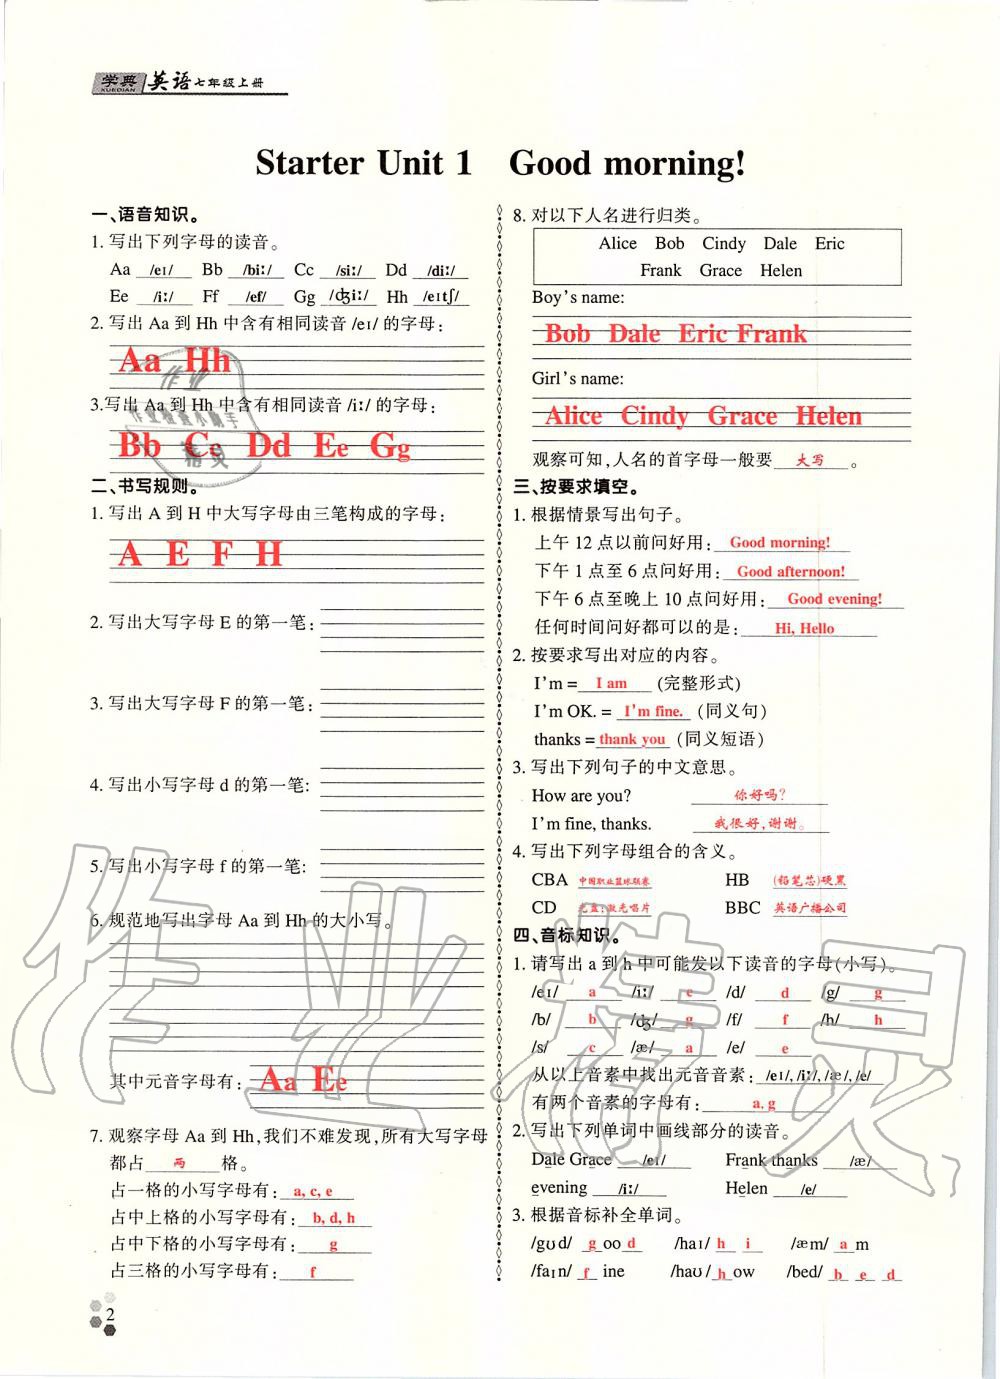 学典 XUEDIAN 英语七年级上册
Starter Unit 1 Good morning!
一、语音知识。
1. 写出下列字母的读音。
Aa /eɪ/ Bb /biː/ Cc /siː/ Dd /diː/
Ee /iː/ Ff /ef/ Gg /ʤiː/ Hh /eɪtʃ/
2. 写出 Aa 到 Hh 中含有相同读音 /eɪ/ 的字母:
Aa Hh
3.写出 Aa 到 Hh 中含有相同读音 /iː/ 的字母:
Bb Cc Dd Ee Gg
二、书写规则。
1. 写出 A 到 H 中大写字母由三笔构成的字母:
A E F H
2. 写出大写字母 E 的第一笔:
3. 写出大写字母 F 的第一笔:
4. 写出小写字母 d 的第一笔:
5. 写出小写字母 f 的第一笔:
6. 规范地写出字母 Aa 到 Hh 的大小写。
其中元音字母有: Aa Ee
7. 观察字母 Aa 到 Hh,我们不难发现,所有大写字母
都占 两 格。
占一格的小写字母有: a, c, e
占中上格的小写字母有: b, d, h
占中下格的小写字母有: g
占三格的小写字母有: f
2
8. 对以下人名进行归类。
Alice Bob Cindy Dale Eric
Frank Grace Helen
Boy's name:
Bob Dale Eric Frank
Girl's name:
Alice Cindy Grace Helen
观察可知,人名的首字母一般要 大写 。
三、按要求填空。
1. 根据情景写出句子。
上午 12 点以前问好用: Good morning!
下午 1 点至 6 点问好用: Good afternoon!
下午 6 点至晚上 10 点问好用: Good evening!
任何时间问好都可以的是: Hi, Hello
2. 按要求写出对应的内容。
I'm = I am (完整形式)
I'm OK. = I'm fine. (同义句)
thanks = thank you (同义短语)
3. 写出下列句子的中文意思。
How are you? 你好吗?
I'm fine, thanks. 我很好,谢谢。
4. 写出下列字母组合的含义。
CBA 中国职业篮球联赛 HB (铅笔芯)硬黑
CD 光盘;激光唱片 BBC 英语广播公司
四、音标知识。
1. 请写出 a 到 h 中可能发以下读音的字母(小写)。
/eɪ/ a /iː/ e /d/ d /g/ g
/b/ b /ʤ/ g /f/ f /h/ h
/s/ c /æ/ a /e/ e
从以上音素中找出元音音素: /eɪ/, /iː/, /æ/, /e/
有两个音素的字母有: a, g
2. 写出下列单词中画线部分的读音。
Dale Grace /eɪ/ Frank thanks /æ/
evening /iː/ Helen /e/
3. 根据音标补全单词。
/gʊd/ g oo d /haɪ/ h i /æm/ a m
/faɪn/ f ine /haʊ/ h ow /bed/ b e d
作业精灵
作业检查小助手